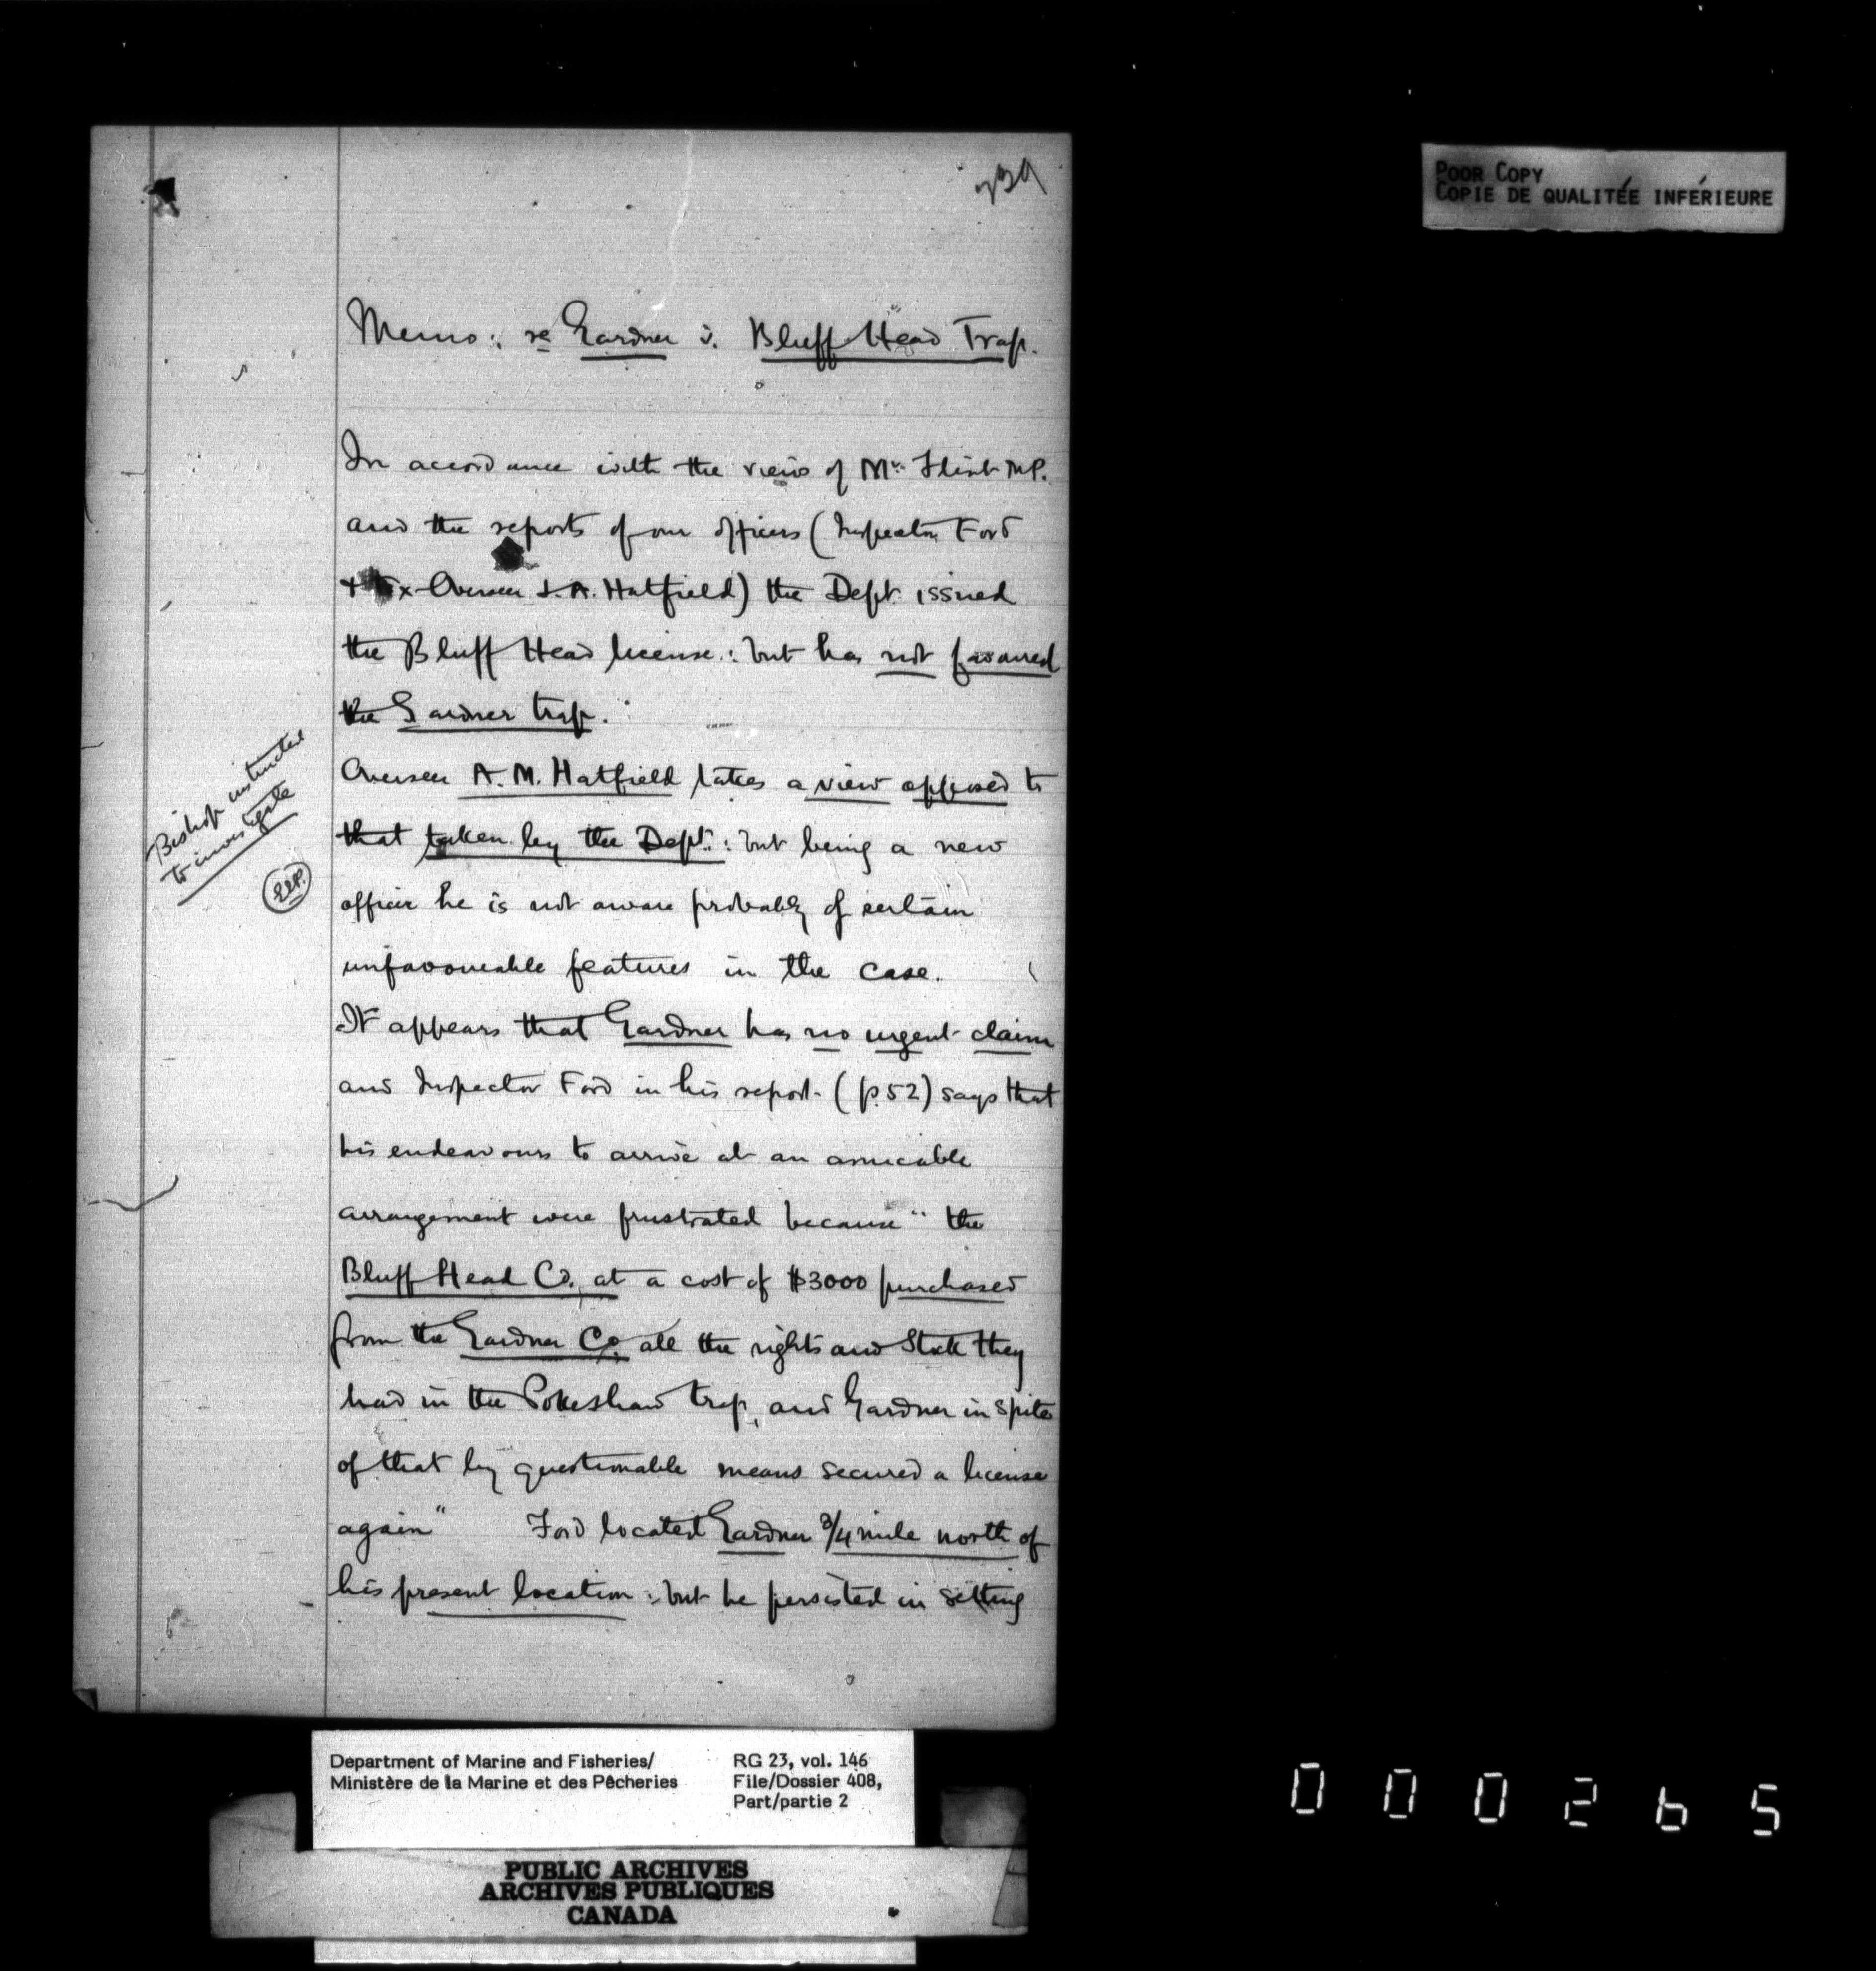 239
POOR COPY
COPIE DE QUALITÉE INFÉRIEURE
Memo: re Gardner v. Bluff Head Trap.
In accordance with the view of Mr. Flint M.P.
and the reports of our officers (Inspector Ford
+ Ex-Overseer J. A. Hatfield) the Dept. issued
the Bluff Head license: but has not favoured
the Gardner trap.
Overseer A. M. Hatfield takes a view opposed to
that taken by the Dept.: but being a new
officer he is not aware probably of certain
unfavourable features in the case.
Bishop instructed
to investigate
E.E.P.
It appears that Gardner has no urgent claim
and Inspector Ford in his report (p.52) says that
his endeavours to arrive at an amicable
arrangement were frustrated because "the
Bluff Head Co. at a cost of $3000 purchased
from the Gardner Co. all the rights and Stock they
had in the Pokeshaw trap, and Gardner in spite
of that by questionable means secured a license
again" Ford located Gardner 3/4 mile north of
his present location: but he persisted in setting
Department of Marine and Fisheries/
Ministère de la Marine et des Pêcheries
RG 23, vol. 146
File/Dossier 408,
Part/partie 2
PUBLIC ARCHIVES
ARCHIVES PUBLIQUES
CANADA
000265